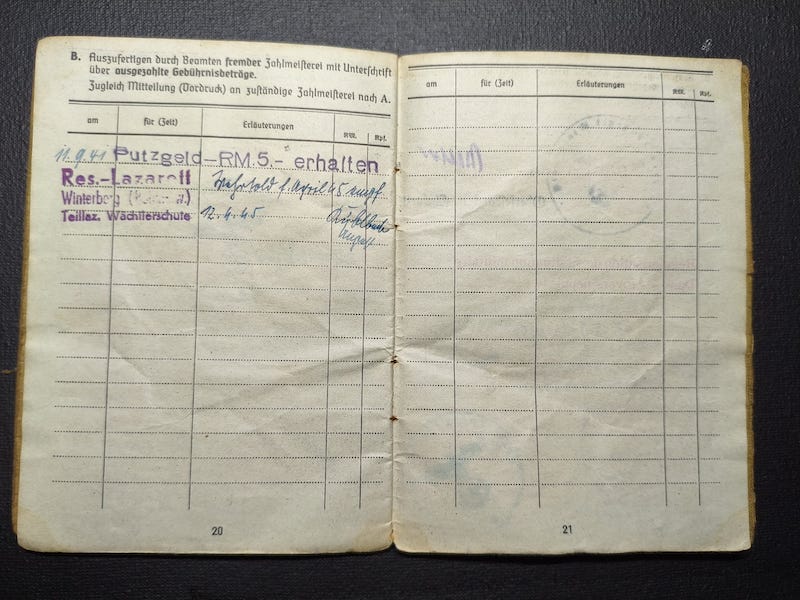 B. Auszufertigen durch Beamten fremder Zahlmeisterei mit Unterschrift
über ausgezahlte Gebührnisbeträge.
Zugleich Mitteilung (Vordruck) an zuständige Zahlmeisterei nach A.
am für (Zeit) Erläuterungen RM. Rpf.
11.9.41 Putzgeld-RM.5.- erhalten
Res.-Lazarett
Winterberg
Teillaz. Wächterschule
Wehrsold f. April 45 empf.
12.4.45
August
20
am für (Zeit) Erläuterungen RM. Rpf.
21